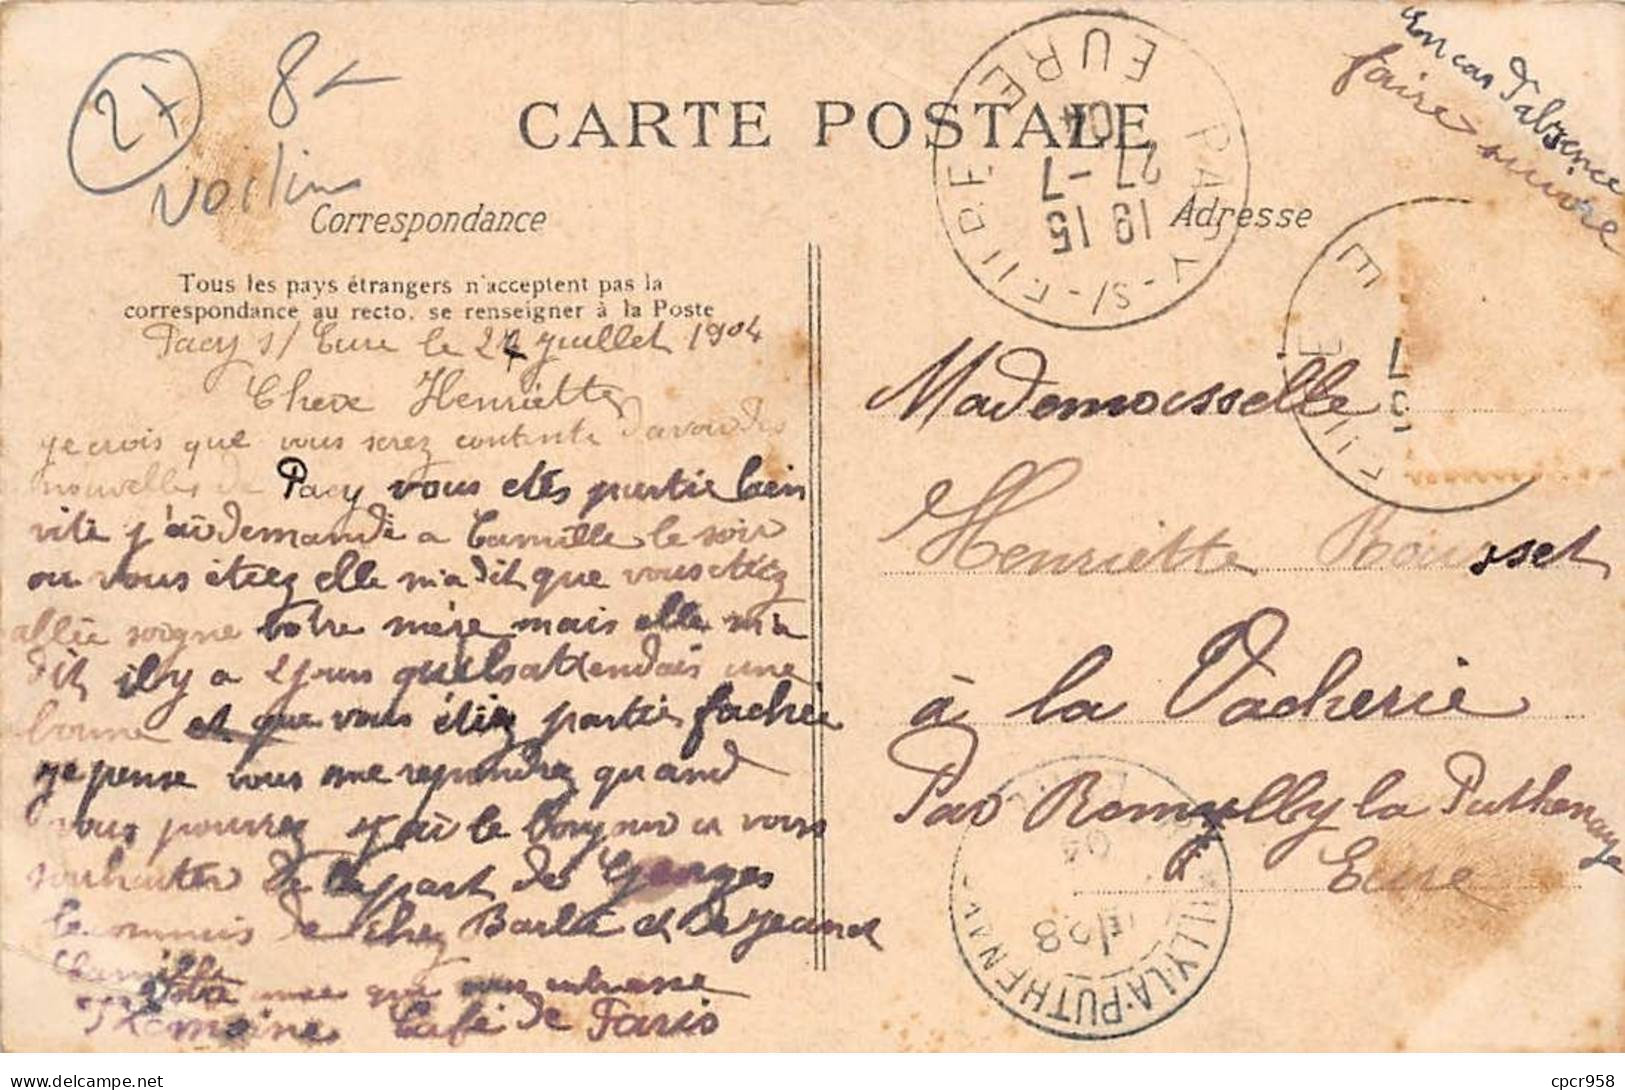 27
8
CARTE POSTALE
En cas d'absence
faire suivre
PACY-S/-EURE
EURE
19 15
27 -7
04
Correspondance
Adresse
Tous les pays étrangers n'acceptent pas la
correspondance au recto. se renseigner à la Poste
Pacy s/ Eure le 27 juillet 1904
Chere Henriette
je crois que vous serez contente d'avoir des
nouvelles de Pacy vous etes partie bien
vite j'ai demandé a Camille le soir
ou vous étiez elle m'a dit que vous etiez
allée soigne votre mère mais elle m'a
dit il y a 2 jours quelle attendais une
bonne et que vous étiez partie fachée
je pense vous me repondrez quand
vous pourrez j'ai le bonjour a vous
souhaiter de la part de Georges
le commis de chez Barbé et de Jeanne et
Camille
votre amie qui vous embrasse
Café de Paris
Mademoisselle
Henriette Rousset
à la Vacherie
Par Romilly la Puthenaye
Eure
EURE
ROMILLY-LA-PUTHENAYE
28
04
cpcr958